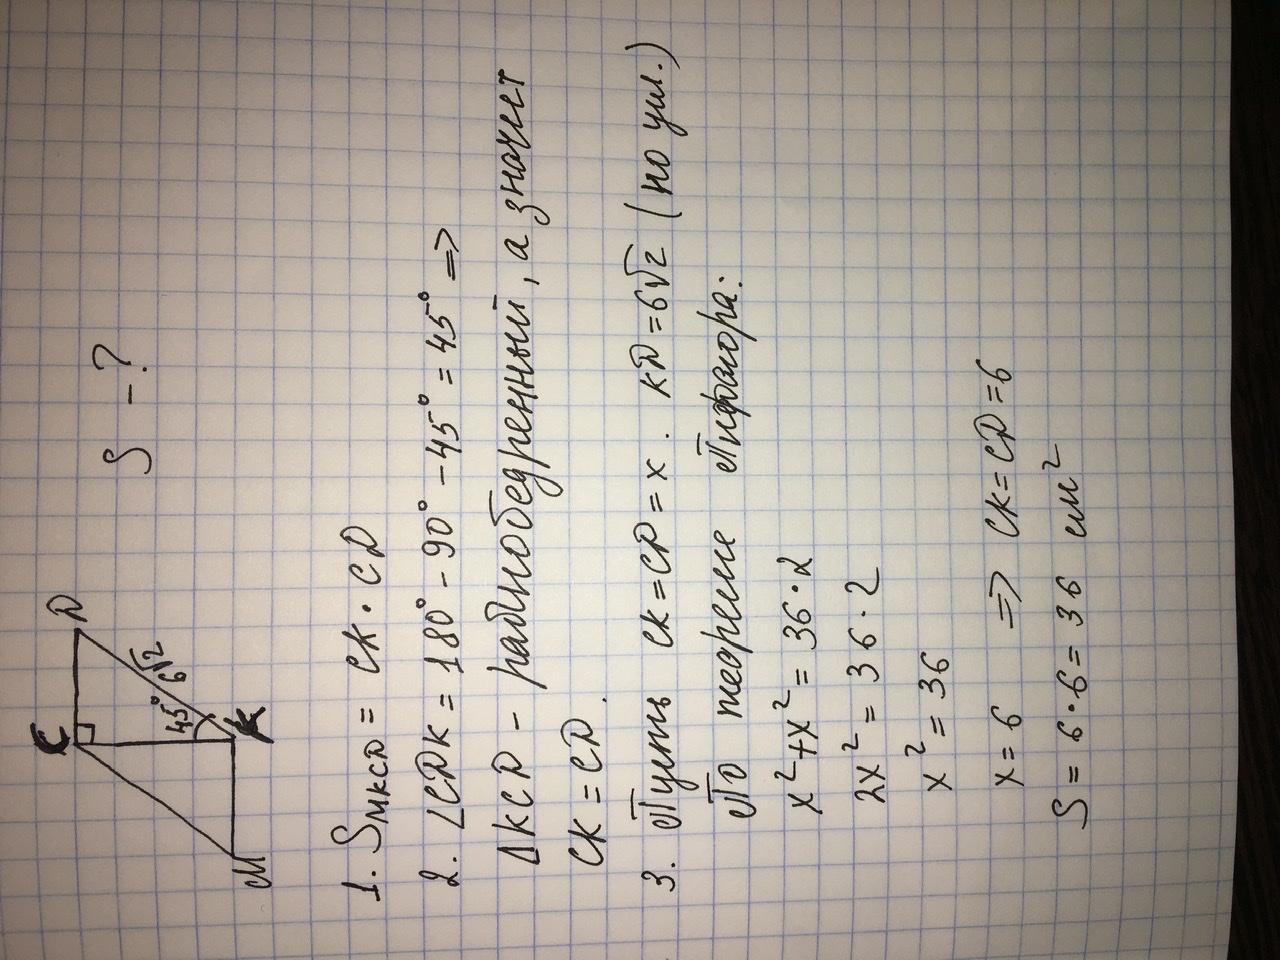 S - ?
C
D
45° 6√2
M
K
1. S MKCD = CK · CD
2. ∠CDK = 180° - 90° - 45° = 45° =>
ΔKCD - равнобедренный, а значит
CK = CD.
3. Пусть CK = CD = x. KD = 6√2 (по усл.)
По теореме Пифагора:
x² + x² = 36 · 2
2x² = 36 · 2
x² = 36
x = 6 => CK = CD = 6
S = 6 · 6 = 36 см²